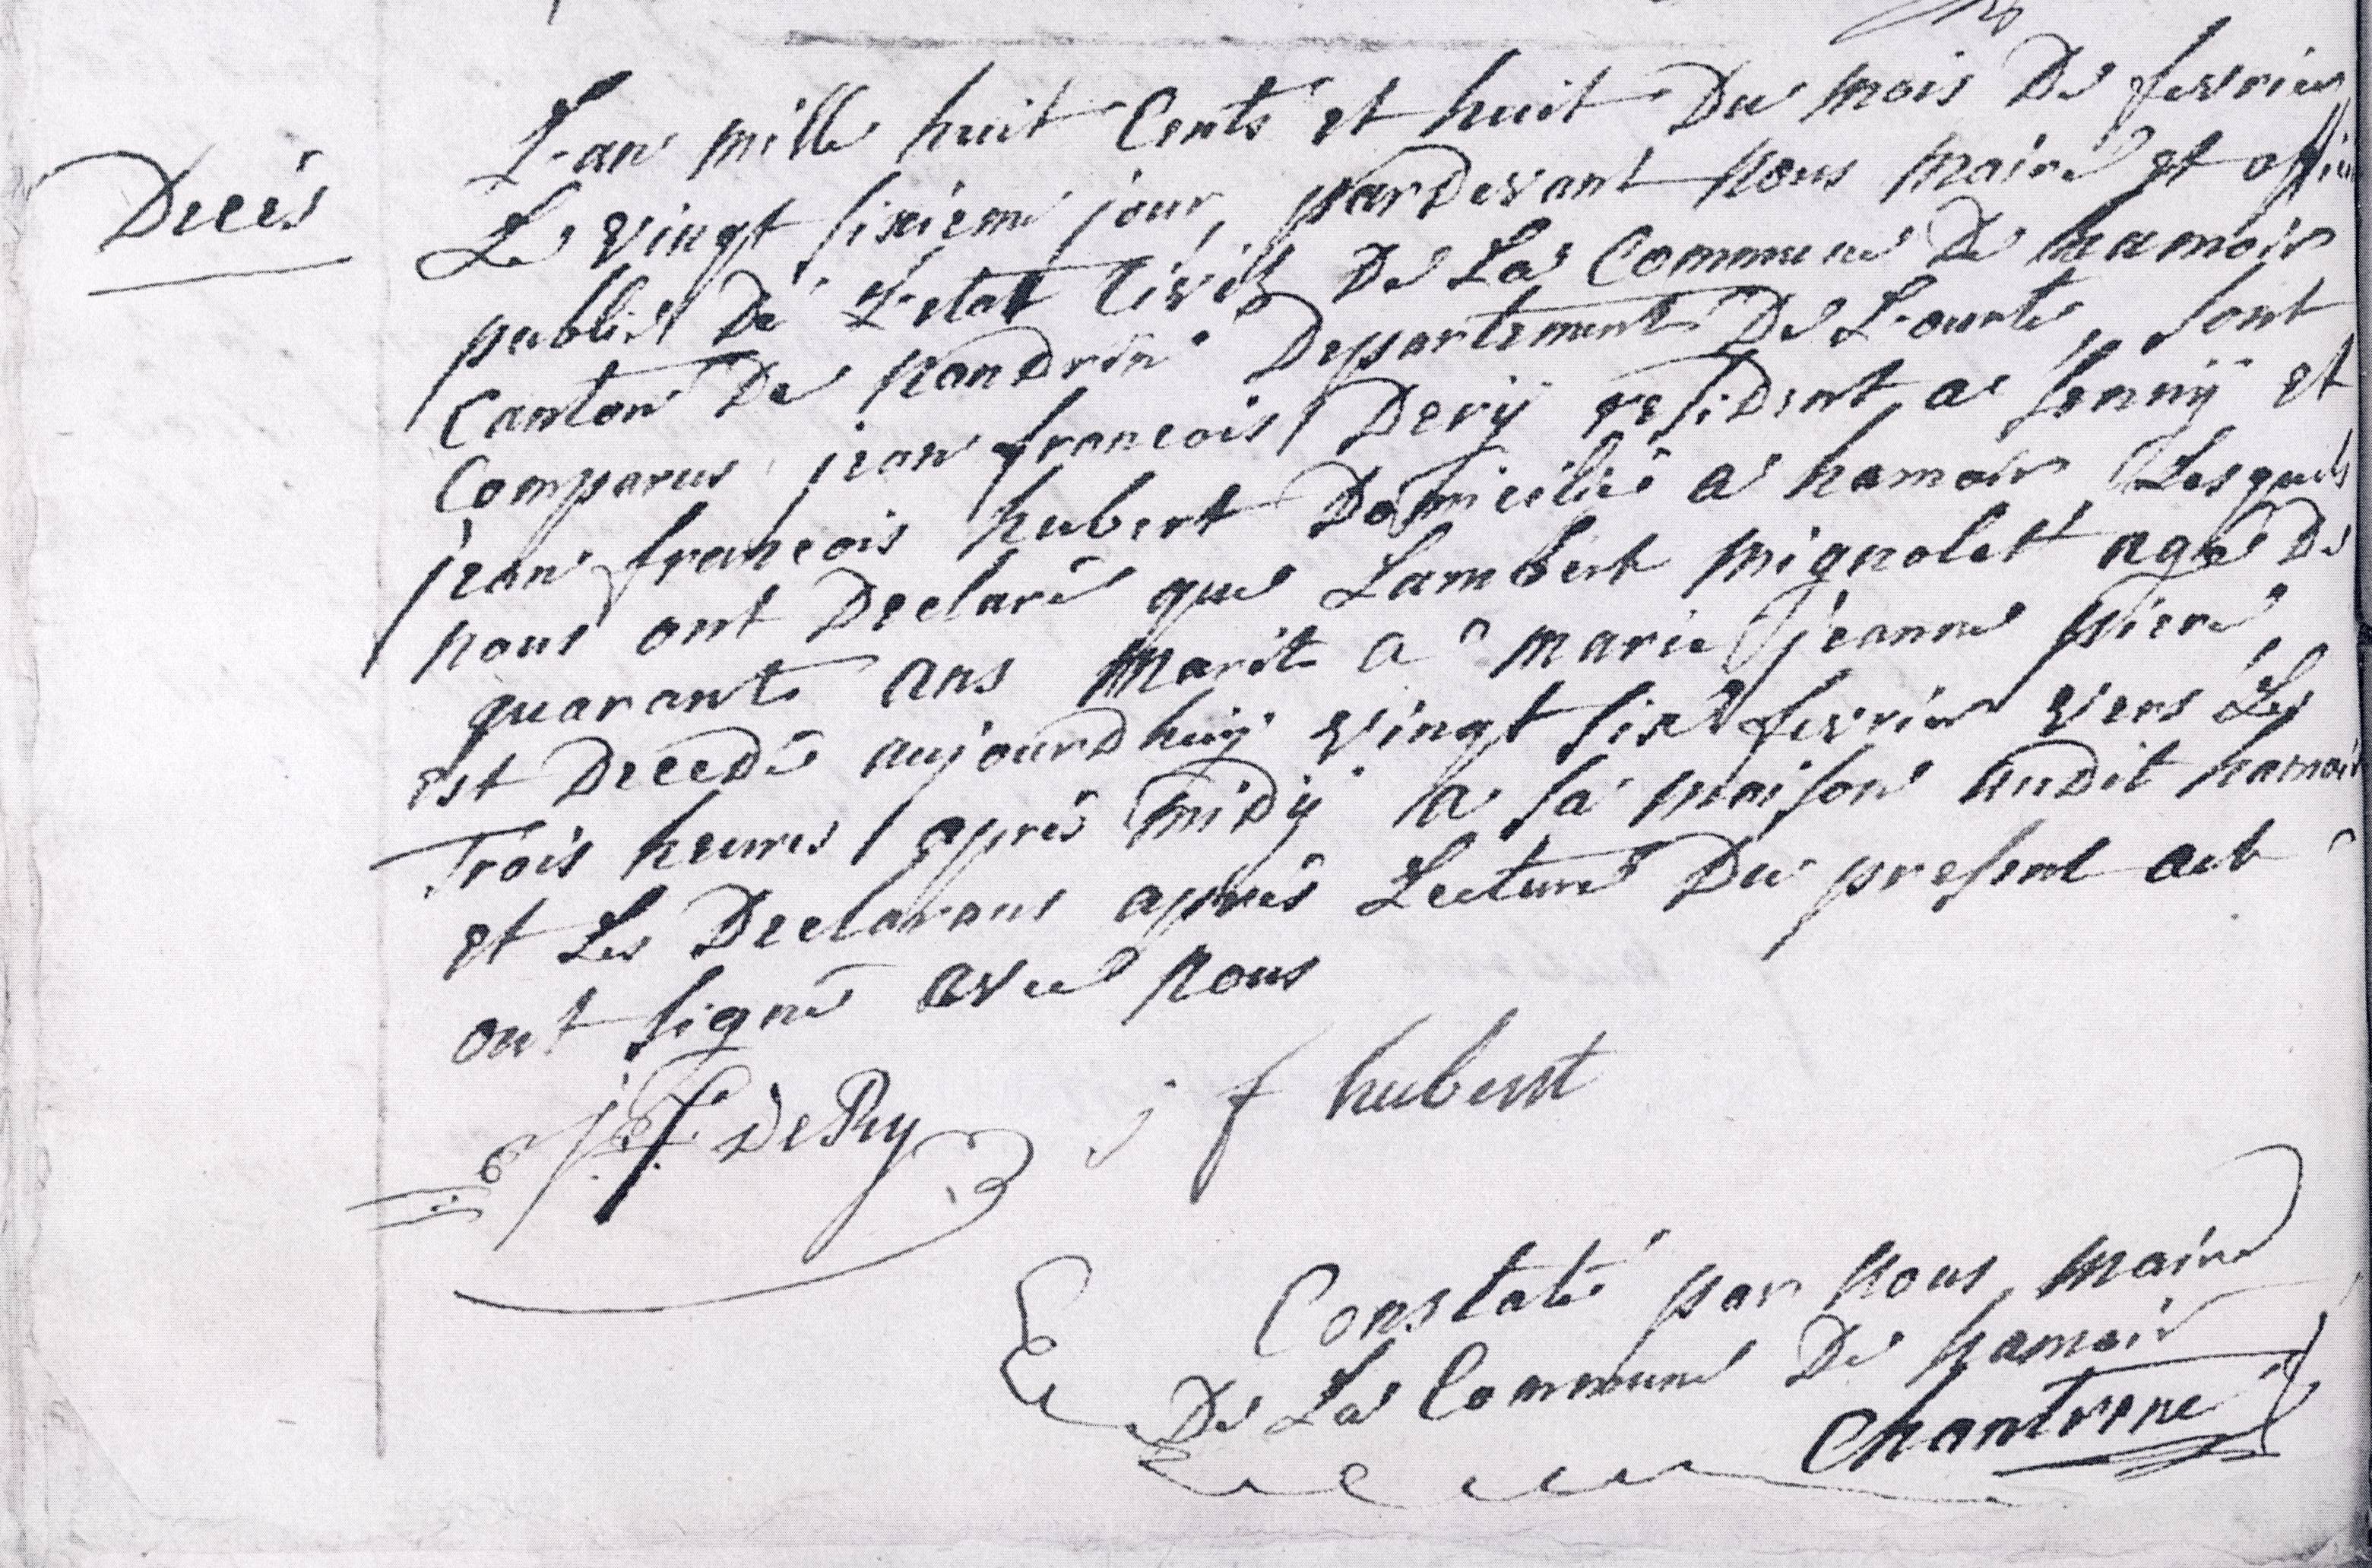 Decès
L'an mille huit Cents et huit Du mois De fevrier
Le vingt sixieme jour, pardevant nous maire et offici
publics De L'etat Civil De La Commune De hamoir
Canton De nandrin Departement De L'ourte, sont
Comparus jean francois Dery resident a senny et
jean francois hubert Domicilié a hamoir Lesquels
nous ont Declaré que Lambert mignolet agé De
quarante ans marit a marie jeanne piere
est Decedé aujourdhuij vingt six fevrier vers Les
Trois heures après midij a sa maison audit hamoir
et Les Declarans après Lecture Du present act
ont signé avec nous
j f DeRy j f hubert
Constaté par nous maire
De La Commune De hamoir
Chantrene